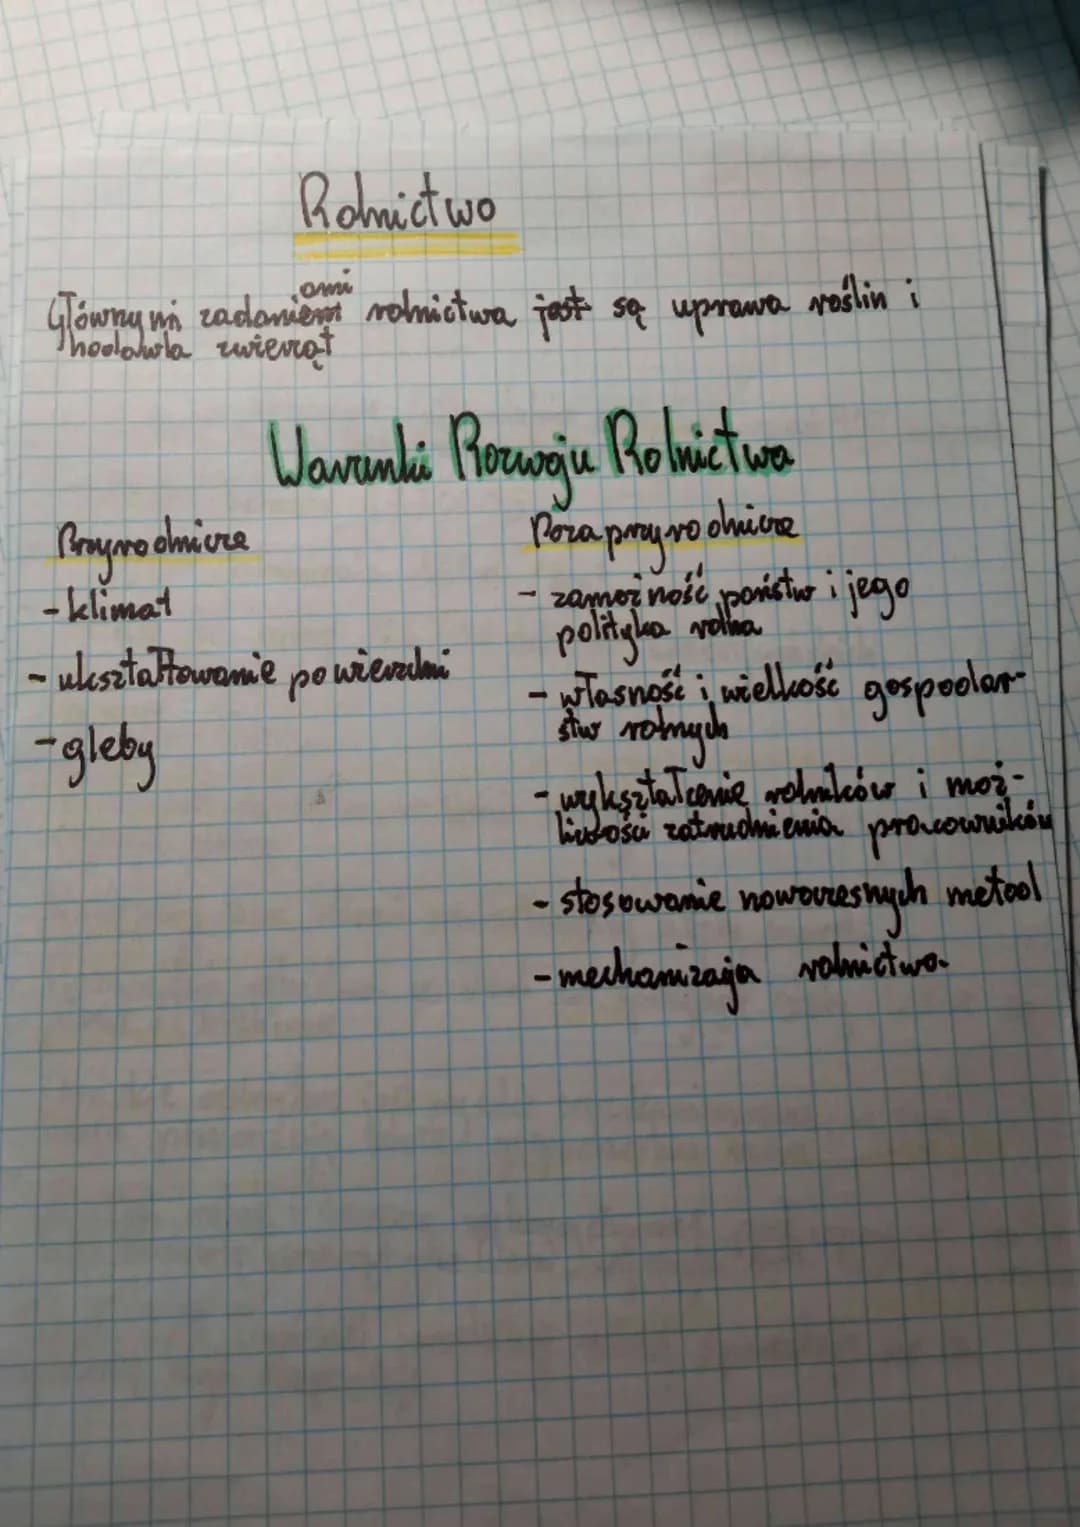 Rolnictwo
ami
Głównymi zadaniem rolnictwa jest są uprawa roślin i
hodowla zwierząt
Warunki Rozwoju Rolnictwa
Przyrodnicze
- klimat
- ukształtowanie powierzchni
- gleby
Pozaprzyrodnicze
- zamożność państw i jego
polityka rolna
- własność i wielkość gospodar-
stw rolnych
- wykształcenie rolników i moż-
liwości zatrudnienia pracowników
- stosowanie nowoczesnych metod
- mechanizacja rolnictwa